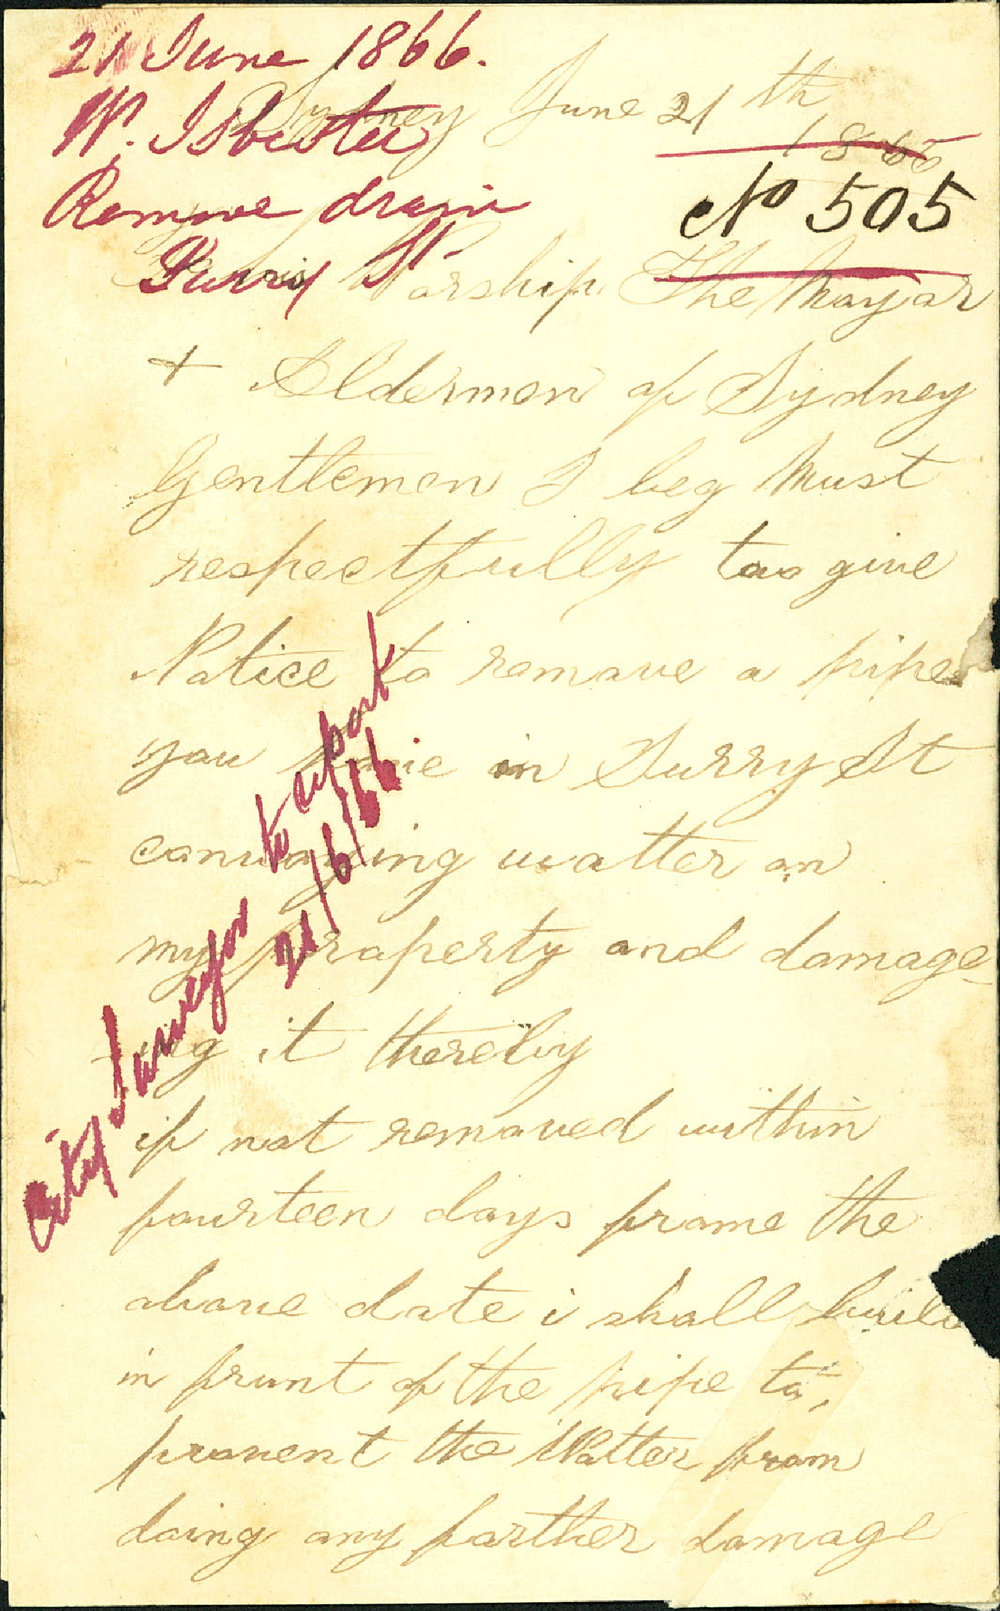 21 June 1866.
W. Isbister
Remove drain
Surry St.
Sydney June 21 th
1866
No 505
Worship The Mayor
+ Aldermen of Sydney
Gentlemen I beg Must
respectfully too give
Notice to remove a pipe
you have in Surry St
convaying watter on
my property and damage
ing it thereby
if not removed within
fourteen days frome the
above date i shall build
in frunt of the pipe to
prevent the Watter from
doing any farther damage
City Surveyor to report
21/6/66